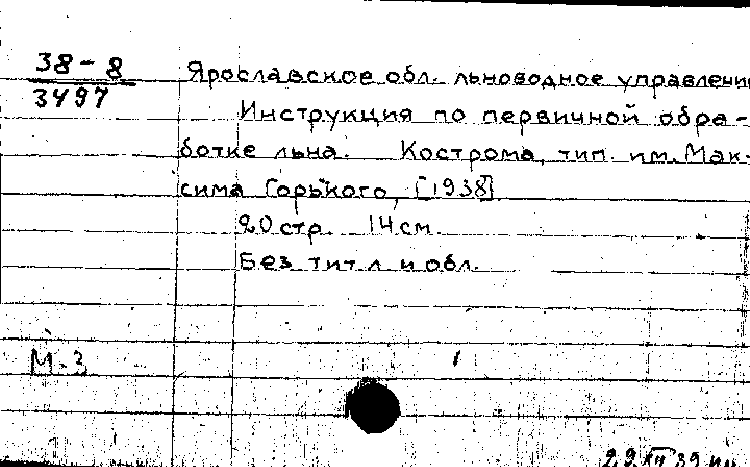 38-8
3497
Ярославское обл. льноводное управлени
Инструкция по первичной обра-
ботке льна. Кострома, тип. им. Мак-
сима Горького, [1938]
20 стр. 14 см.
Без тит л и обл.
М-3